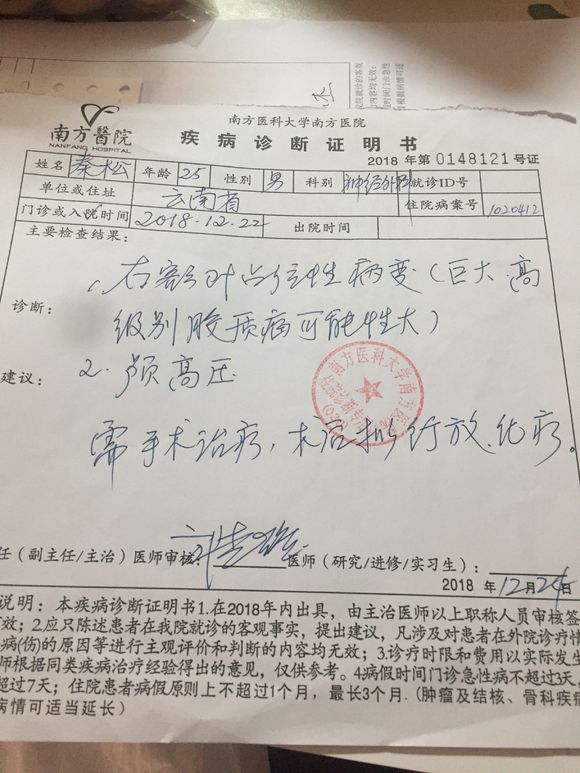 南方医科大学南方医院
南方醫院
NANFANG HOSPITAL
疾病诊断证明书
2018 年第 0148121 号证
姓名 秦松 年龄 25 性别 男 科别 神经外科 就诊ID号
单位或住址 云南省 住院病案号 1020412
门诊或入院时间 2018.12.22 出院时间
主要检查结果:
1. 右额叶占位性病变(巨大.高
诊断:
级别胶质瘤可能性大)
建议: 2. 颅高压
南方医科大学南方医院
需手术治疗,术后拟行放.化疗。
任(副主任/主治)医师审核: 医师(研究/进修/实习生):
2018 年 12 月 24 日
说明:本疾病诊断证明书1.在2018年内出具,由主治医师以上职称人员审核签
效;2.应只陈述患者在我院就诊的客观事实,提出建议,凡涉及对患者在外院诊疗情
病(伤)的原因等进行主观评价和判断的内容均无效;3.诊疗时限和费用以实际发生
师根据同类疾病治疗经验得出的意见,仅供参考。4.病假时间门诊急性病不超过3天,
超过7天;住院患者病假原则上不超过1个月,最长3个月.(肿瘤及结核、骨科疾病
病情可适当延长)